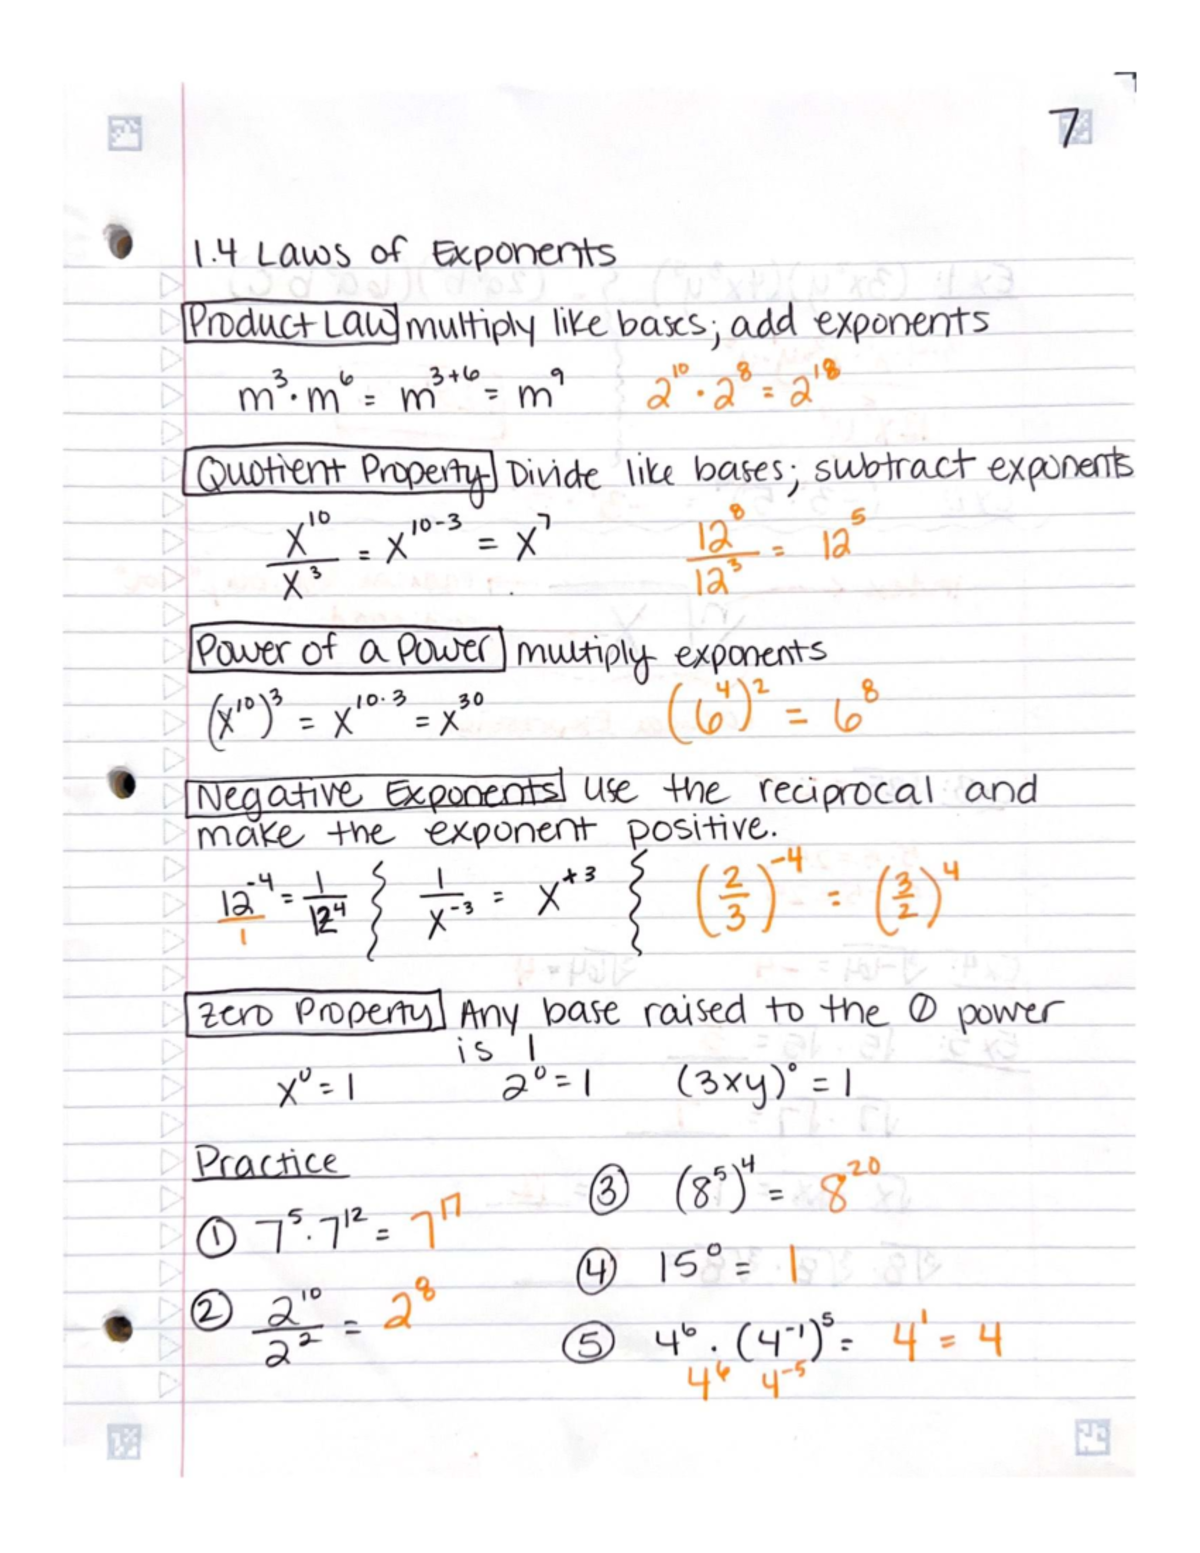 7
1.4 Laws of Exponents
Product Law multiply like bases; add exponents
m³·m⁶ = m³⁺⁶ = m⁹ 2¹⁰·2⁸ = 2¹⁸
Quotient Property Divide like bases; subtract exponents
x¹⁰/x³ = x¹⁰⁻³ = x⁷ 12⁸/12³ = 12⁵
Power of a Power multiply exponents
(x¹⁰)³ = x^(10·3) = x³⁰ (6⁴)² = 6⁸
Negative Exponents use the reciprocal and
make the exponent positive.
12⁻⁴/1 = 1/12⁴ 1/x⁻³ = x⁺³ (2/3)⁻⁴ = (3/2)⁴
Zero Property Any base raised to the 0 power
is 1
x⁰ = 1 2⁰ = 1 (3xy)⁰ = 1
Practice
① 7⁵·7¹² = 7¹⁷
② 2¹⁰/2² = 2⁸
③ (8⁵)⁴ = 8²⁰
④ 15⁰ = 1
⑤ 4⁶·(4⁻¹)⁵ = 4¹ = 4
4⁶ 4⁻⁵